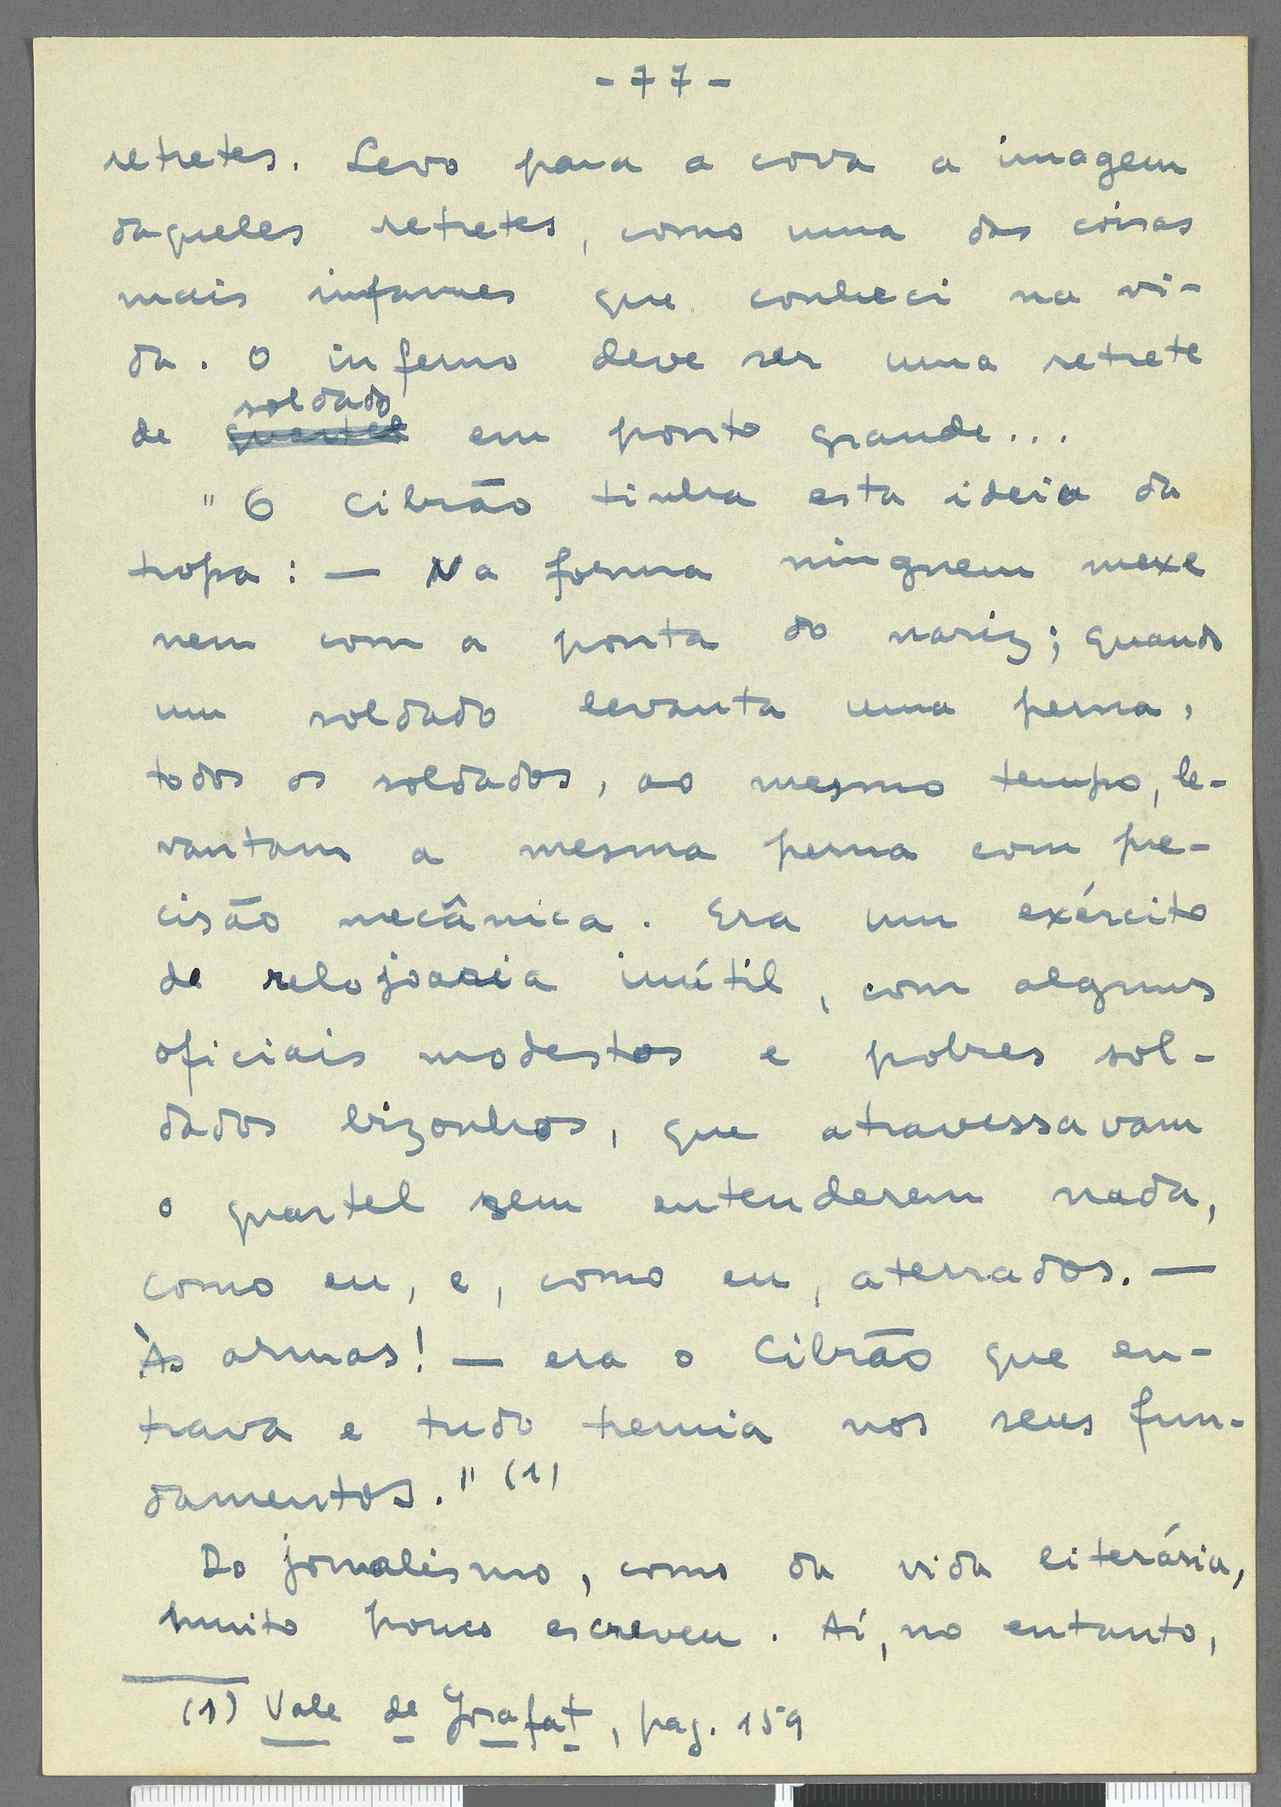 - 77 -
retretes. Levo para a cova a imagem
daqueles retretes, como uma das coisas
mais infames que conheci na vi-
da. O inferno deve ser uma retrete
soldado
de quartel em ponto grande...
"O Cibrão tinha esta ideia da
tropa: — Na forma ninguem mexe
nem com a ponta do nariz; quando
um soldado levanta uma perna,
todos os soldados, ao mesmo tempo, le-
vantam a mesma perna com pre-
cisão mecânica. Era um exército
de relojoaria inútil, com alguns
oficiais modestos e pobres sol-
dados bizonhos, que atravessavam
o quartel sem entenderem nada,
como eu, e, como eu, aterrados. —
Às armas! — era o Cibrão que en-
trava e tudo tremia nos seus fun-
damentos." (1)
Do jornalismo, como da vida literária,
muito pouco escreveu. Aí, no entanto,
(1) Vale de Josafat, pag. 159